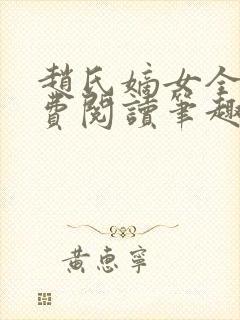 趙氏嫡女全
費閱讀筆趣
黃惠寧